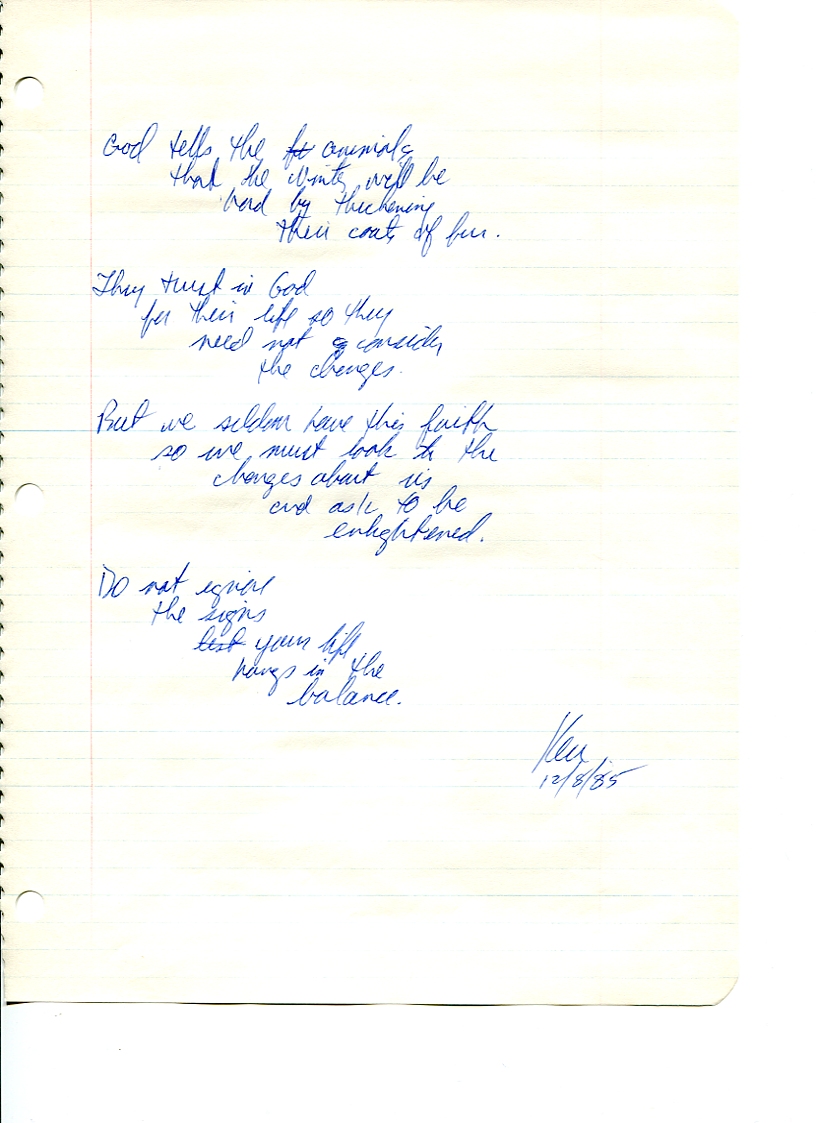 God tells the animals
that the Winter will be
hard by thickening
their coats of fur.
They trust in God
for their life so they
need not consider
the changes.
But we seldom have this faith
so we must look to the
changes about us
and ask to be
enlightened.
Do not ignore
the signs
lest your life
hangs in the
balance.
Ken
12/8/85